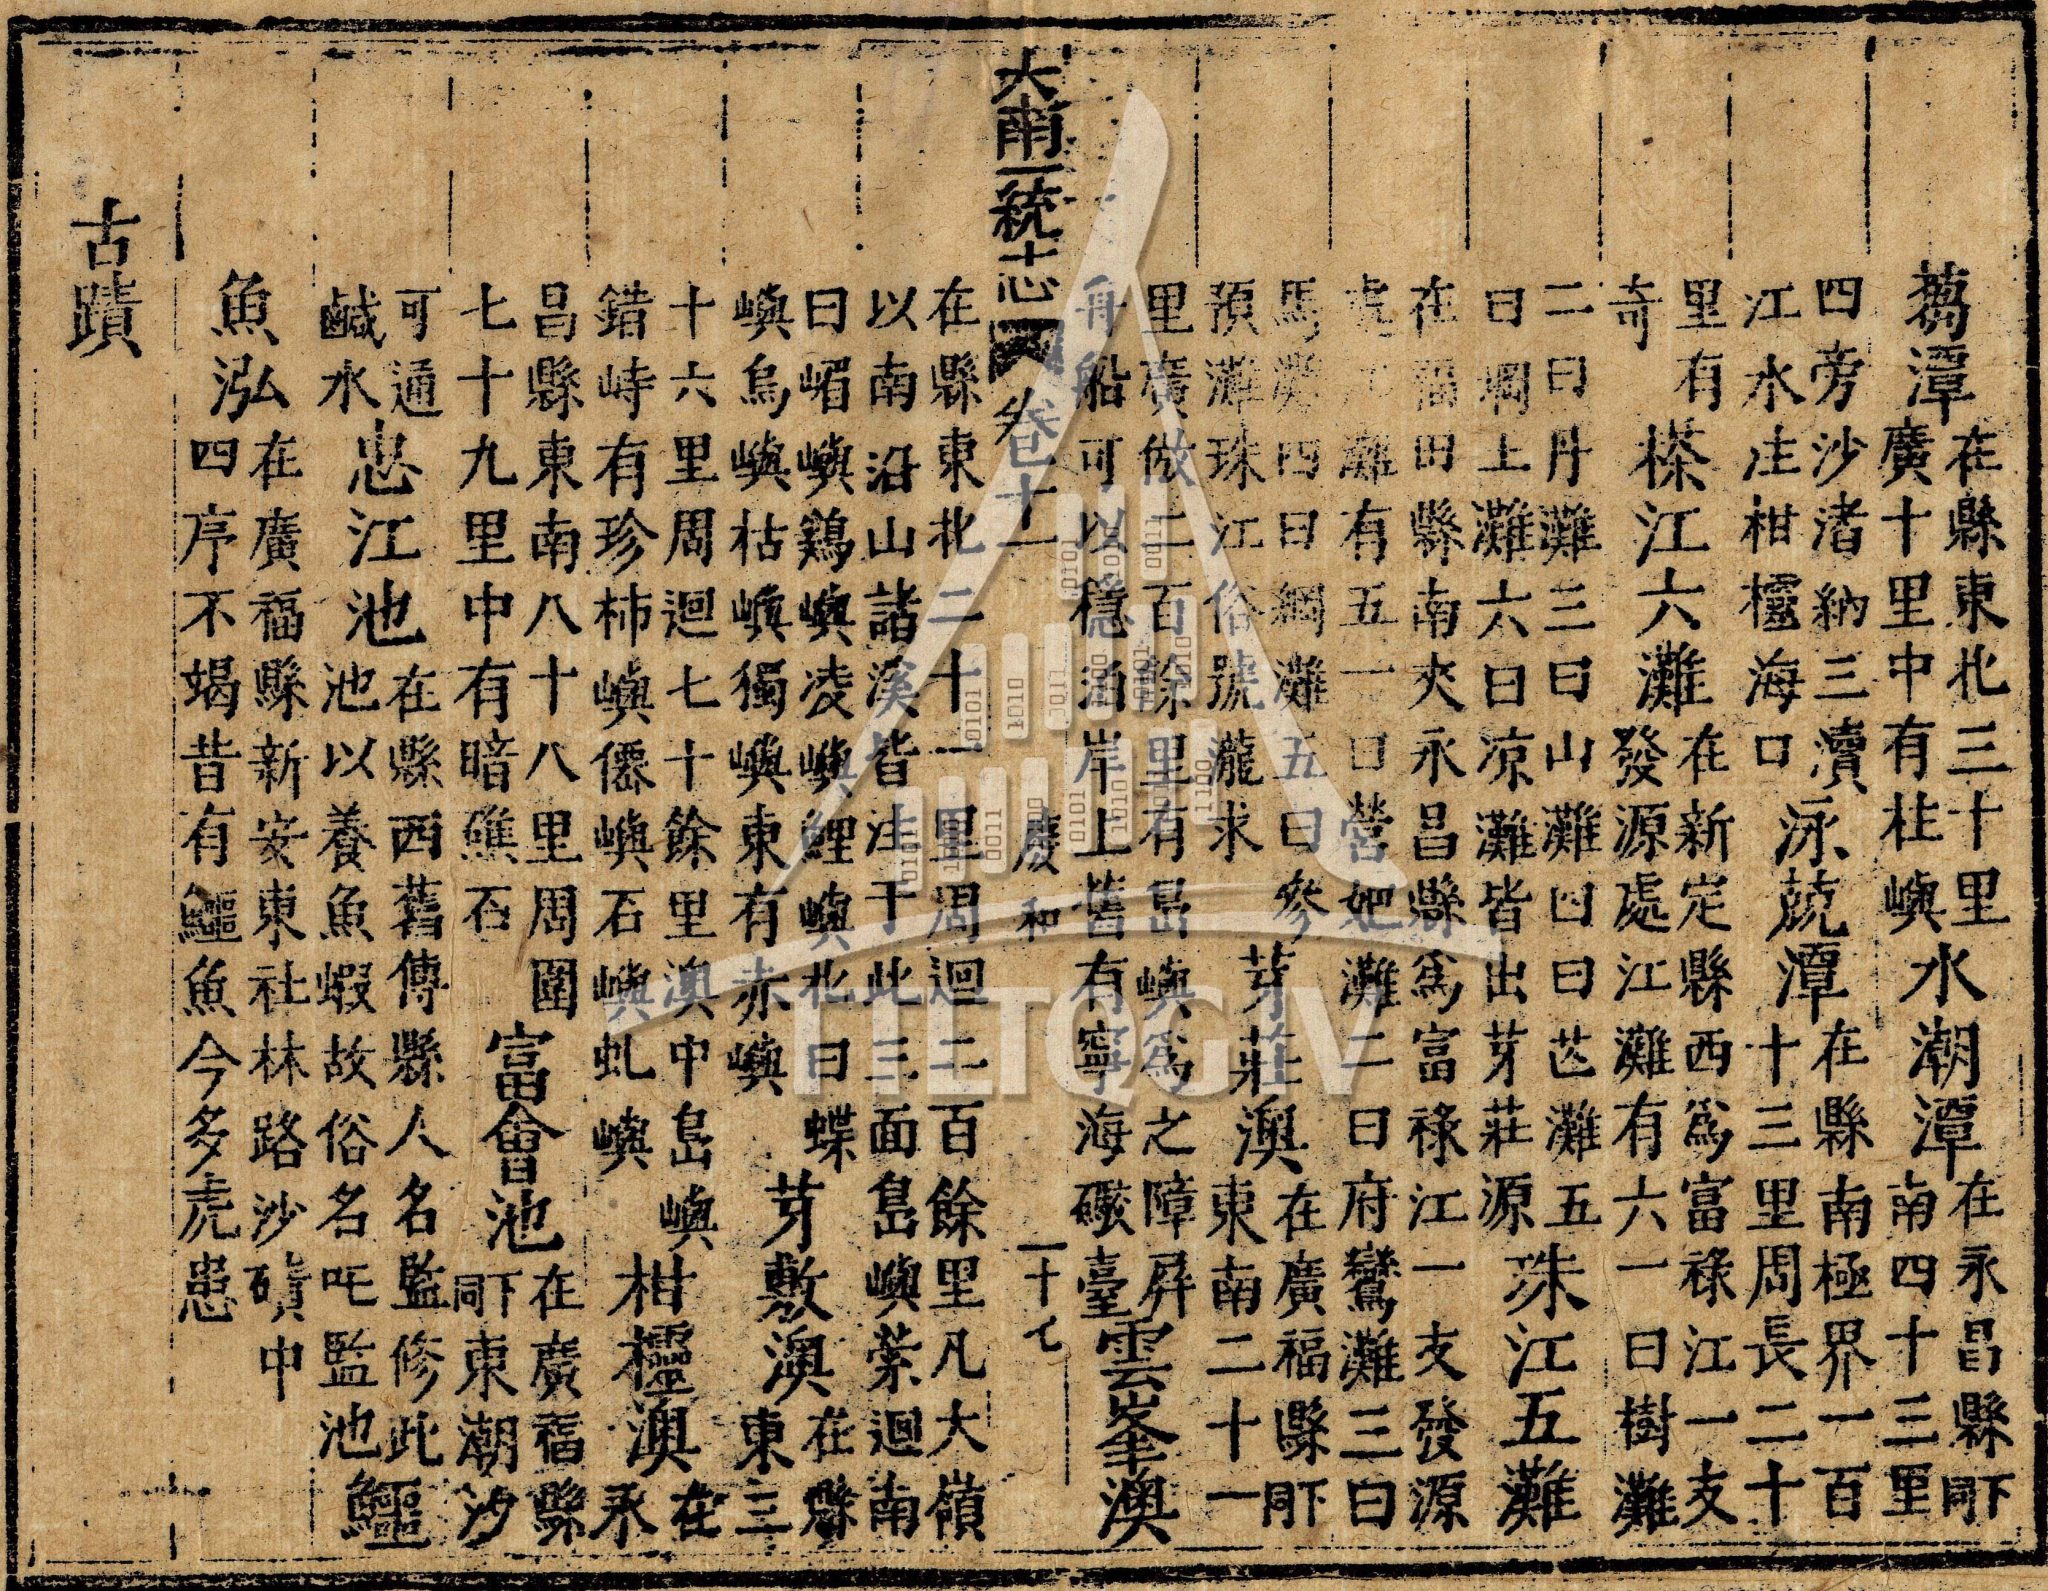 蒭潭
在縣東北三十里
廣十里中有柱嶼
水潮潭
在永昌縣同下
南四十三里
四旁沙渚納三瀆
江水注柑櫃海口
泳兢潭
在縣南極界一百
十三里周長二十
里有
榇江六灘
在新定縣西為富祿江一支
奇
發源處江灘有六一曰樹灘
二曰丹灘三曰山灘四曰芑灘五
曰綢上灘六曰凉灘皆出芽莊源
珠江五灘
在福田縣南夾永昌縣為富祿江一支發源
處灘有五一曰營妑灘二曰府鸞灘三曰
馬灘四曰綢灘五曰參
預灘珠江俗號瀧求
芽莊澳
在廣福縣同下
東南二十一
里廣倣二百餘里有島嶼為之障屏
舟船可以穩泊岸上舊有寧海礮臺
雲峯澳
大南一統志 卷十一 慶和 一十七
在縣東北二十一里周迴二百餘里凡大嶺
以南沿山諸溪皆注于此三面島嶼縈迴南
曰嵋嶼鷄嶼凌嶼鯉嶼北曰蝶
嶼烏嶼枯嶼獨嶼東有赤嶼
芽敷澳
在縣
東三
十六里周迴七十餘里澳中島嶼
錯峙有珍柿嶼僊嶼石嶼虬嶼
柑櫃澳
在永
昌縣東南八十八里周圍
七十九里中有暗礁石
富會池
在廣福縣
同下東潮汐
可通
鹹水
忠江池
在縣西舊傳縣人名監修此
池以養魚蝦故俗名吒監池
鱷
魚泓
在廣福縣新安東社林路沙磧中
四序不竭昔有鱷魚今多虎患
古蹟